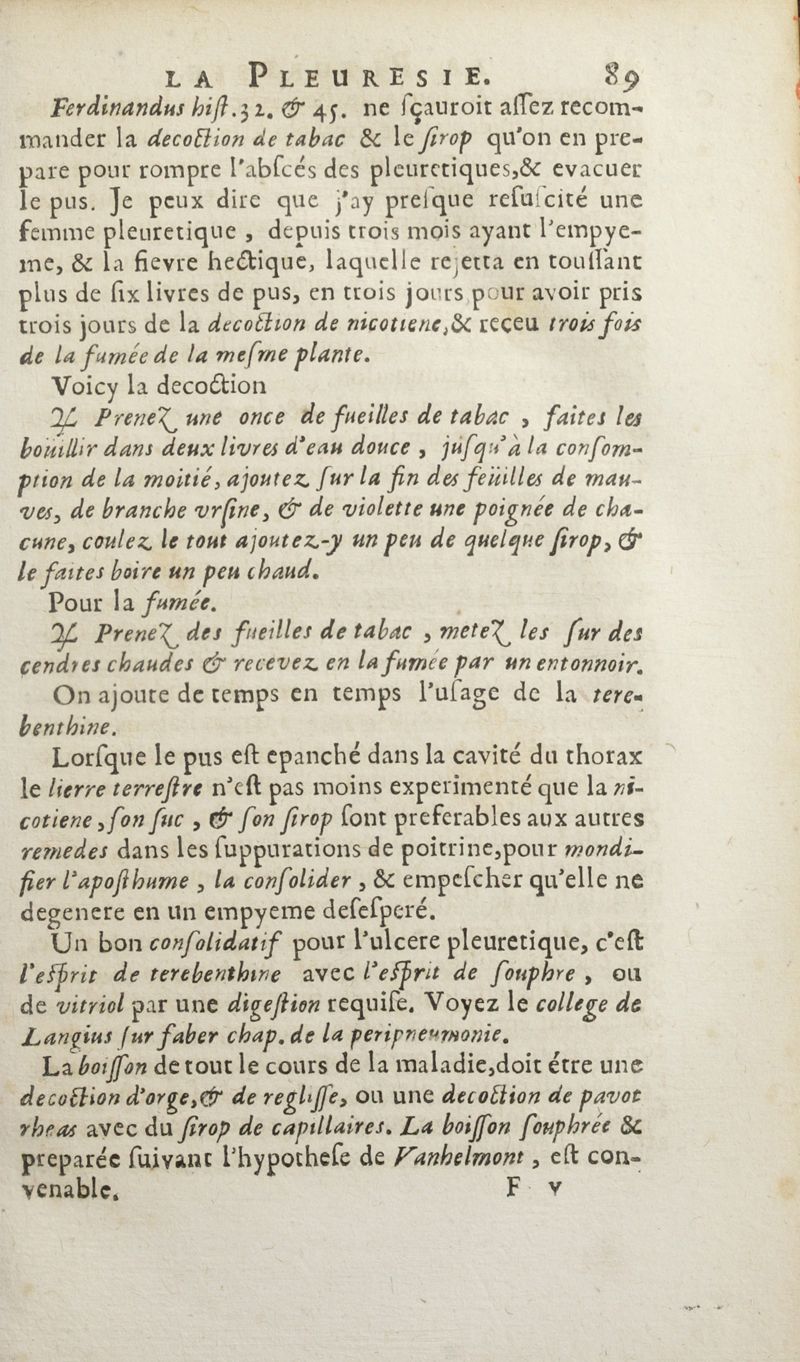 LA PLEURESIE. 89
Ferdinandus hiſt.32. & 45. ne ſçauroit aſſez recom-
mander la decoction de tabac & le ſirop qu'on en pre-
pare pour rompre l'abſcés des pleuretiques,& evacuer
le pus. Je peux dire que j'ay preſque reſuſcité une
femme pleuretique , depuis trois mois ayant l'empye-
me, & la fievre hectique, laquelle rejetta en touſſant
plus de ſix livres de pus, en trois jours pour avoir pris
trois jours de la decoction de nicotiene,& reçeu trois fois
de la fumée de la meſme plante.
Voicy la decoction
♃ Prenez une once de fueilles de tabac , faites les
boüillir dans deux livres d'eau douce , juſqu'à la conſom-
ption de la moitié, ajoutez ſur la fin des feüilles de mau-
ves, de branche vrſine, & de violette une poignée de cha-
cune, coulez le tout ajoutez-y un peu de quelque ſirop, &
le faites boire un peu chaud.
Pour la fumée.
♃ Prenez des fueilles de tabac , metez les ſur des
cendres chaudes & recevez en la fumée par un entonnoir.
On ajoute de temps en temps l'uſage de la tere-
benthine.
Lorſque le pus eſt epanché dans la cavité du thorax
le lierre terreſtre n'eſt pas moins experimenté que la ni-
cotiene ,ſon ſuc , & ſon ſirop ſont preferables aux autres
remedes dans les ſuppurations de poitrine,pour mondi-
fier l'apoſthume , la conſolider , & empeſcher qu'elle ne
degenere en un empyeme deſeſperé.
Un bon conſolidatif pour l'ulcere pleuretique, c'eſt
l'eſprit de terebenthine avec l'eſprit de ſouphre , ou
de vitriol par une digeſtion requiſe. Voyez le college de
Langius ſur faber chap. de la peripneumonie.
La boiſſon de tout le cours de la maladie,doit étre une
decoction d'orge,& de regliſſe, ou une decoction de pavot
rheas avec du ſirop de capillaires. La boiſſon ſouphrée &
preparée ſuivant l'hypotheſe de Vanhelmont , eſt con-
venable. F v